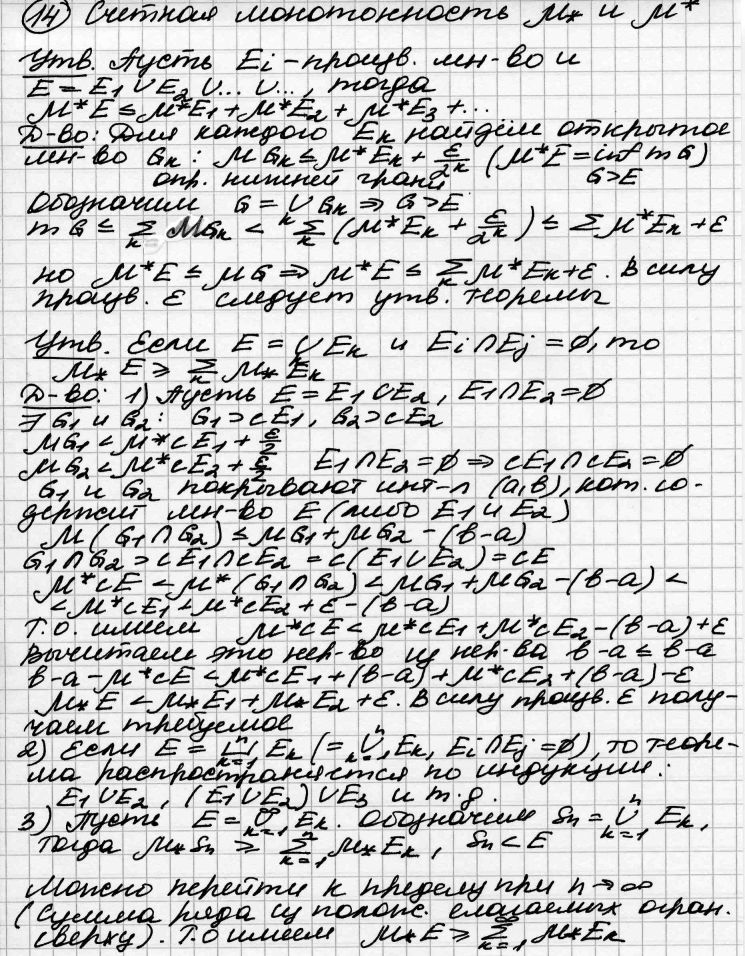 14) Счетная монотонность μ* и μ*
Утв. Пусть Ei - произв. мн-во и
E = E1 ∪ E2 ∪ ... ∪ ..., тогда
μ*E ≤ μ*E1 + μ*E2 + μ*E3 + ...
Д-во: Для каждого Ek найдём открытое
мн-во Gk : μGk ≤ μ*Ek + ε/2^k (μ*E = inf mG)
опр. нижней грани G⊃E
Обозначим G = ∪ Gk ⇒ G⊃E
k
mG ≤ Σ_k μGk < Σ_k (μ*Ek + ε/2^k) ≤ Σ μ*Ek + ε
но μ*E ≤ μG ⇒ μ*E ≤ Σ_k μ*Ek + ε. В силу
произв. ε следует утв. теоремы
Утв. Если E = ∪_k Ek и Ei ∩ Ej = ∅, то
μ* E ≥ Σ_k μ* Ek
Д-во: 1) Пусть E = E1 ∪ E2, E1 ∩ E2 = ∅
∃ G1 и G2 : G1 ⊃ cE1, G2 ⊃ cE2
μG1 < μ*cE1 + ε/2
μG2 < μ*cE2 + ε/2 E1 ∩ E2 = ∅ ⇒ cE1 ∩ cE2 = ∅
G1 и G2 покрывают инт-л (a,b), кот. со-
держит мн-во E (либо E1 и E2)
μ(G1 ∩ G2) ≤ μG1 + μG2 - (b-a)
G1 ∩ G2 ⊃ cE1 ∩ cE2 = c(E1 ∪ E2) = cE
μ*cE < μ*(G1 ∩ G2) < μG1 + μG2 - (b-a) <
< μ*cE1 + μ*cE2 + ε - (b-a)
Т.О. имеем μ*cE < μ*cE1 + μ*cE2 - (b-a) + ε
Вычитаем это нер-во из нер-ва b-a ≤ b-a
b-a - μ*cE < μ*cE1 + (b-a) + μ*cE2 + (b-a) - ε
μ*E < μ*E1 + μ*E2 + ε. В силу произв. ε полу-
чаем требуемое
2) Если E = ⊔_{k=1}^n Ek (= ∪_{k=1}^n Ek, Ei ∩ Ej = ∅), то теоре-
ма распространяется по индукции:
E1 ∪ E2, (E1 ∪ E2) ∪ E3 и т.д.
3) Пусть E = ∪_{k=1}^∞ Ek. Обозначим Sn = ∪_{k=1}^n Ek,
тогда μ* Sn ≥ Σ_{k=1}^n μ* Ek, Sn ⊂ E
Можно перейти к пределу при n → ∞
(Сумма ряда из полож. слагаемых огран.
сверху). Т.О имеем μ* E ≥ Σ_{k=1}^∞ μ* Ek